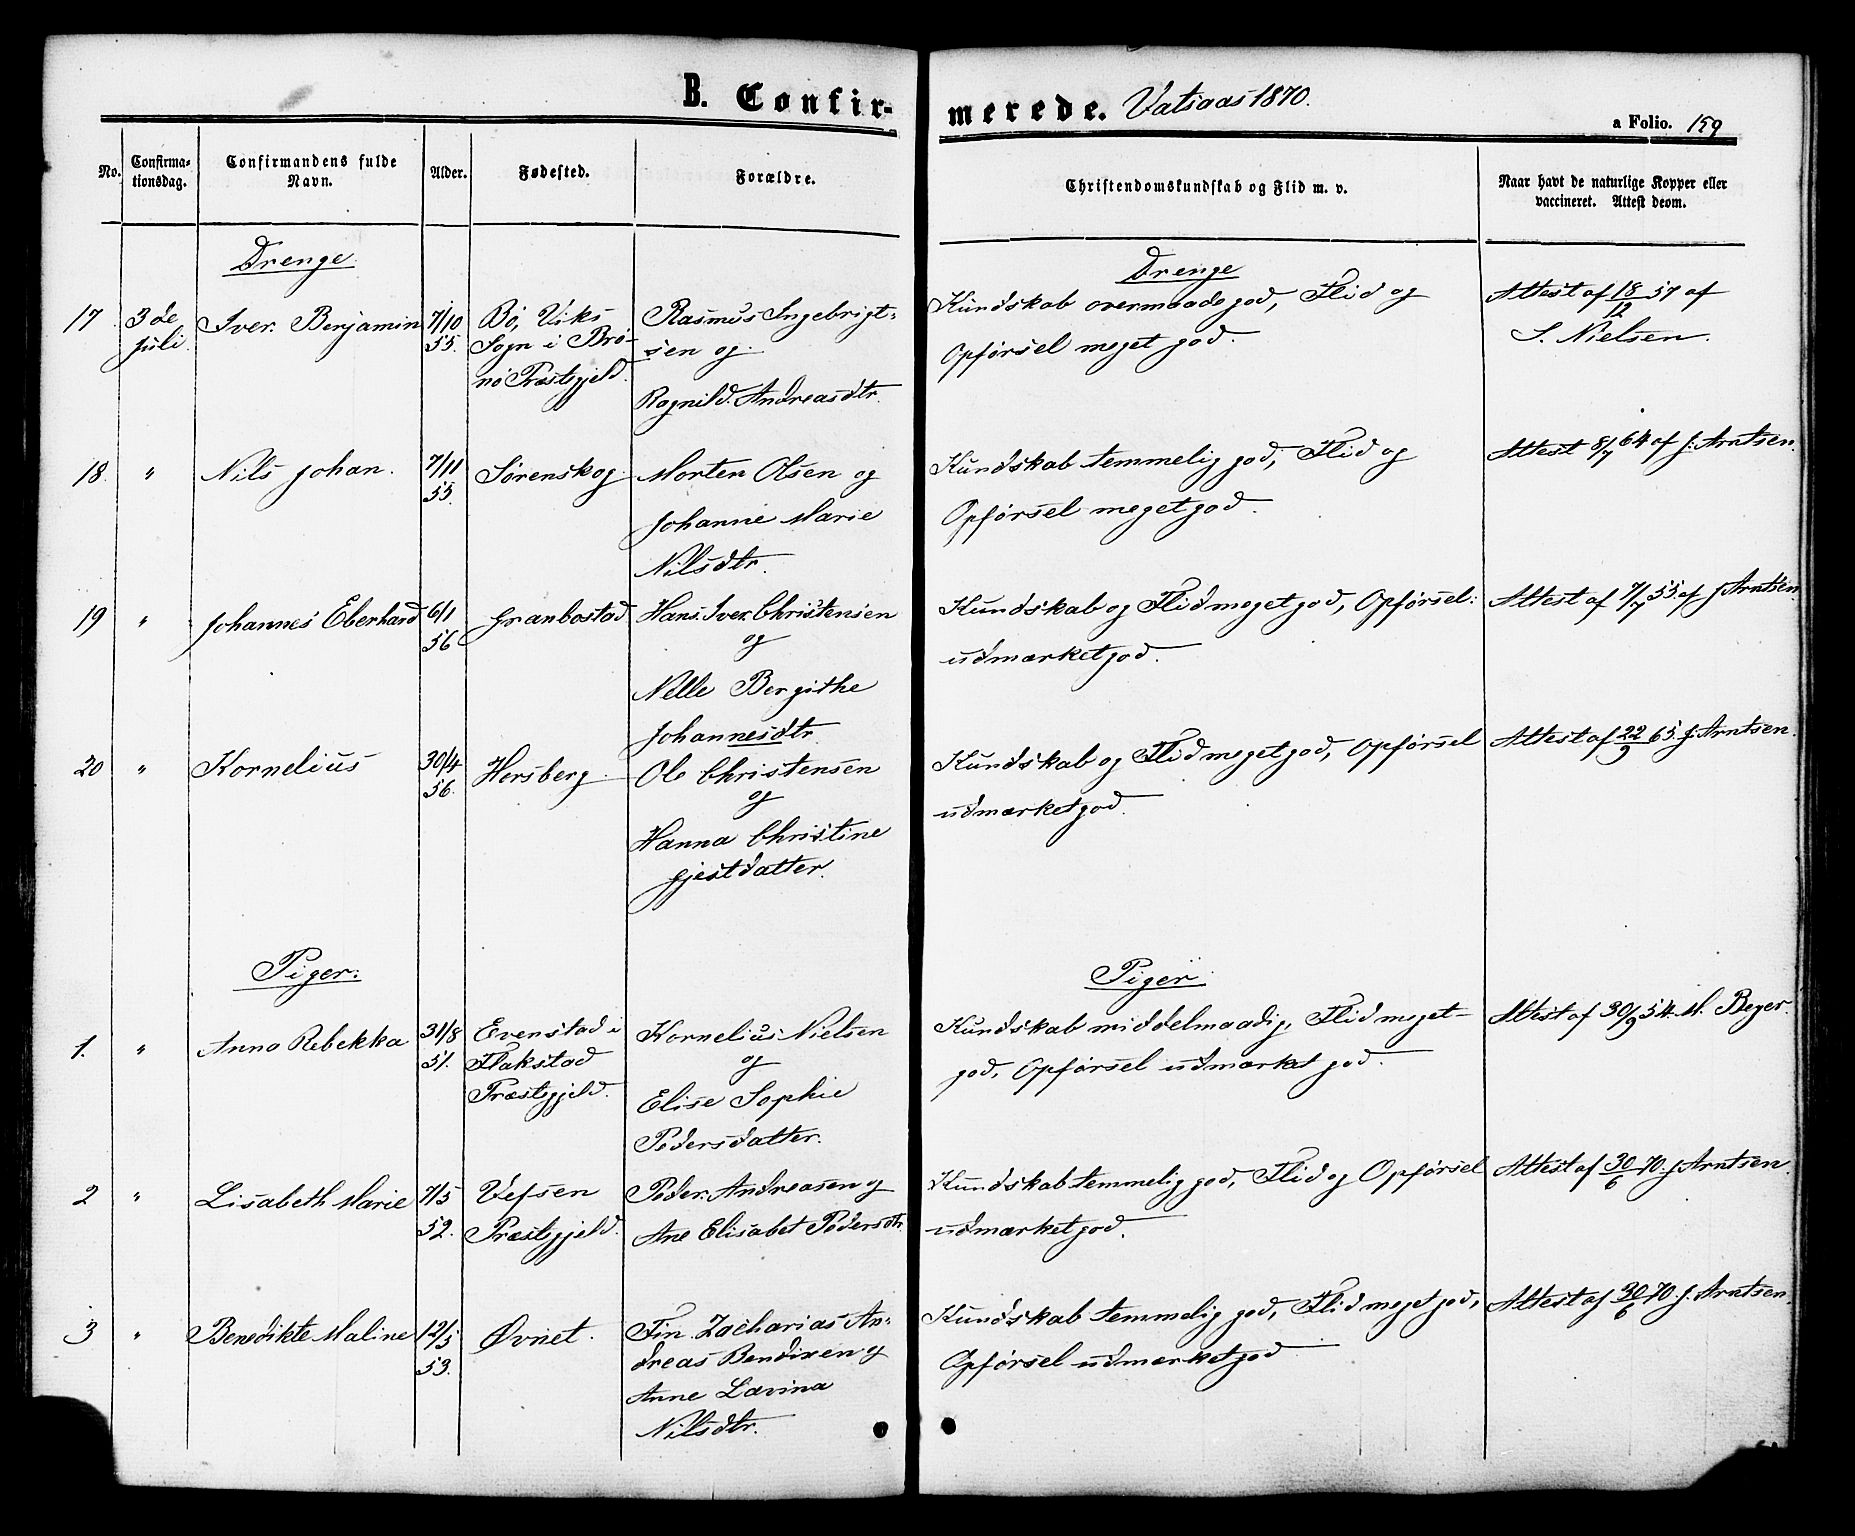 B. Confir-
merede. Vatsaas 1870.
a Folio. 159
No. Confirma-tionsdag. Confirmandens fulde Navn. Alder. Fødested. Forældre. Christendomskundskab og Flid m. v. Naar havt de naturlige Kopper eller vaccineret. Attest deom.
Drenge
Drenge
17. 3de Juli. Iver Benjamin 7/10 55. Bø, Viks Sogn i Brø-nø Præstgjeld. Rasmus Ingebrigt-sen og Ragnild Andreasdtr. Kundskab overmaade god, Flid og Opførsel meget god. Attest af 18/12 57 af S. Nielsen.
18. " Nils Johan. 7/11 55. Sørenskog. Morten Olsen og Johanne Marie Nilsdtr. Kundskab temmelig god, Flid og Opførsel meget god. Attest 8/7 64 af J. Arntsen.
19 " Johannes Eberhard 6/1 56 Granbostad Hans Iver Christensen og Nelle Bergithe Johannesdtr. Kundskab og Flid meget god, Opførsel udmærket god. Attest af 7/7 55 af J Arntsen.
20 " Kornelius 30/4 56. Hersberg. Ole Christensen og Hanna Christine Gjestdatter. Kundskab og Flid meget god, Opførsel udmærket god. Attest af 22/9 65. J. Arntsen.
Piger.
Piger
1. " Anna Rebekka 31/8 51. Evenstad i Flakstad Præstgjeld. Kornelius Nielsen og Elise Sophie Pedersdatter. Kundskab middelmaadig, Flid meget god, Opførsel udmærket god. Attest af 30/9 54 M. Beyer.
2 " Lisabeth Marie 7/5 52. Vefsen Præstgjeld. Peder Andreasen og Ane Elisabet Pedersdtr. Kundskab temmelig god, Flid og Opførsel udmærket god. Attest af 30/6 70. J. Arntsen.
3 " Benedikte Maline 12/5 53. Øvnet. Fin Zacharias An-dreas Bendixen og Anne Lavina Nilsdtr. Kundskab temmelig god, Flid meget god, Opførsel udmærket god Attest af 30/6 70. J. Arntsen.